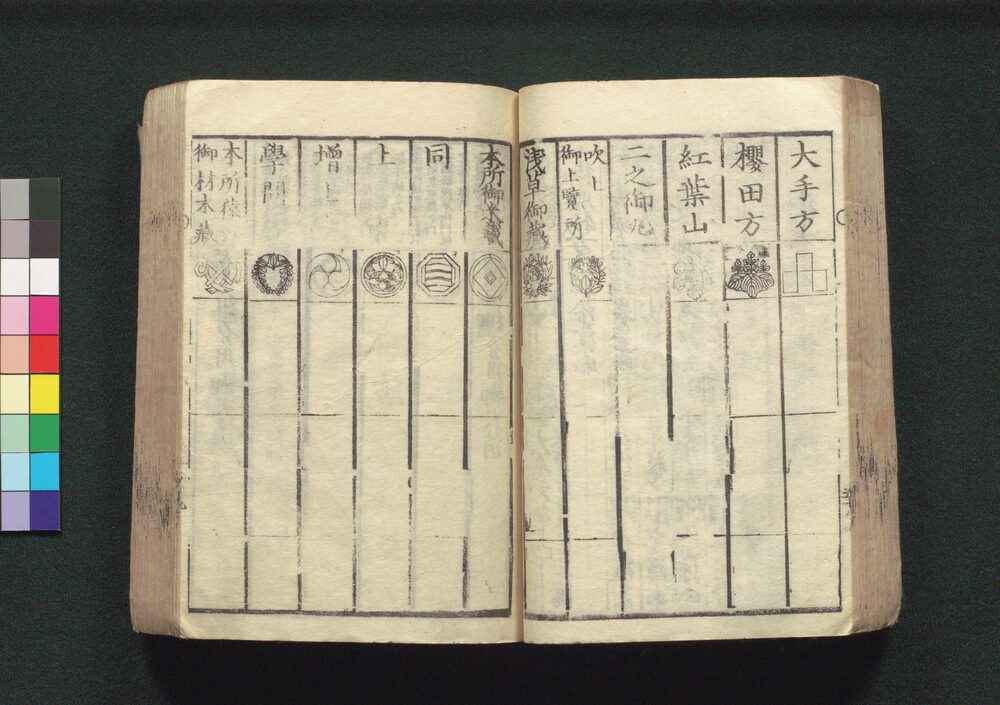 大手方
櫻田方
紅葉山
二之御丸
吹上
御上覽所
浅草御蔵
本所御米蔵
同
上
増上
學問
本所猿
御材木蔵